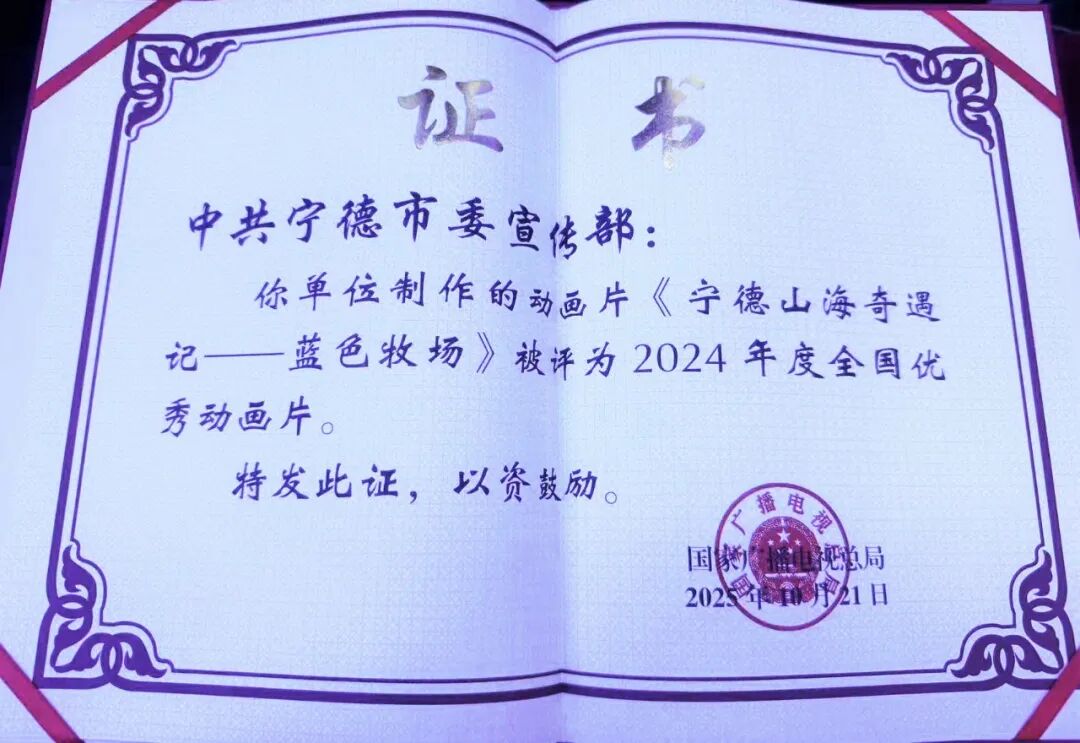 证书
中共宁德市委宣传部：
你单位制作的动画片《宁德山海奇遇
记——蓝色牧场》被评为2024年度全国优
秀动画片。
特发此证，以资鼓励。
国家广播电视总局
2025年10月21日
国家广播电视总局